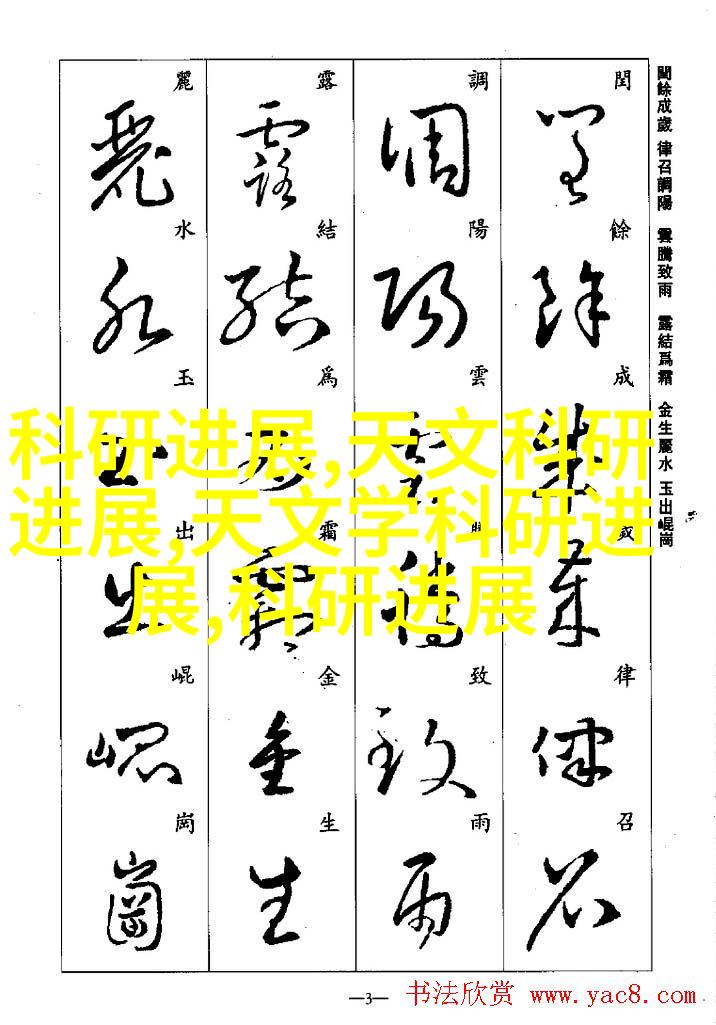 閏餘成歲 律召調陽 雲騰致雨 露結爲霜 金生麗水 玉出崐崗
閏餘成歲律召
調陽雲騰致雨
露結爲霜金生
麗水玉出崐崗
科研进展,天文科研
进展,天文学科研进
展,科研进展
—3—
书法欣赏 www.yac8.com